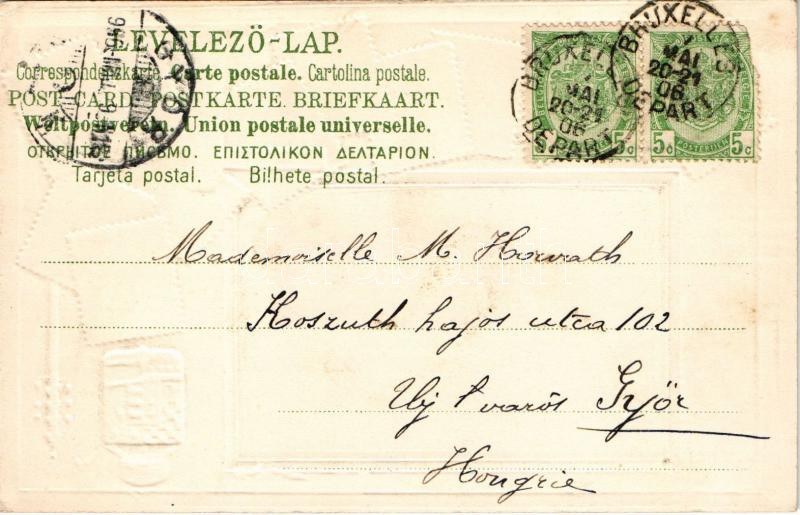 LEVELEZÖ-LAP.
Correspondenzkarte. Carte postale. Cartolina postale.
POST CARD. POSTKARTE. BRIEFKAART.
Weltpostverein. Union postale universelle.
ОТКРЫТОЕ ПИСЬМО. ΕΠΙΣΤΟΛΙΚΟΝ ΔΕΛΤΑΡΙΟΝ.
Tarjeta postal. Bilhete postal.
BRUXELLES
MAI
20-21
06
DEPART
BRUXELLES
MAI
20-21
06
DEPART
5c
5c POSTERIJEN 5c
Mademoiselle M. Horvath
Koszuth hajos utca 102
Uj varòs Györ
Hongrie